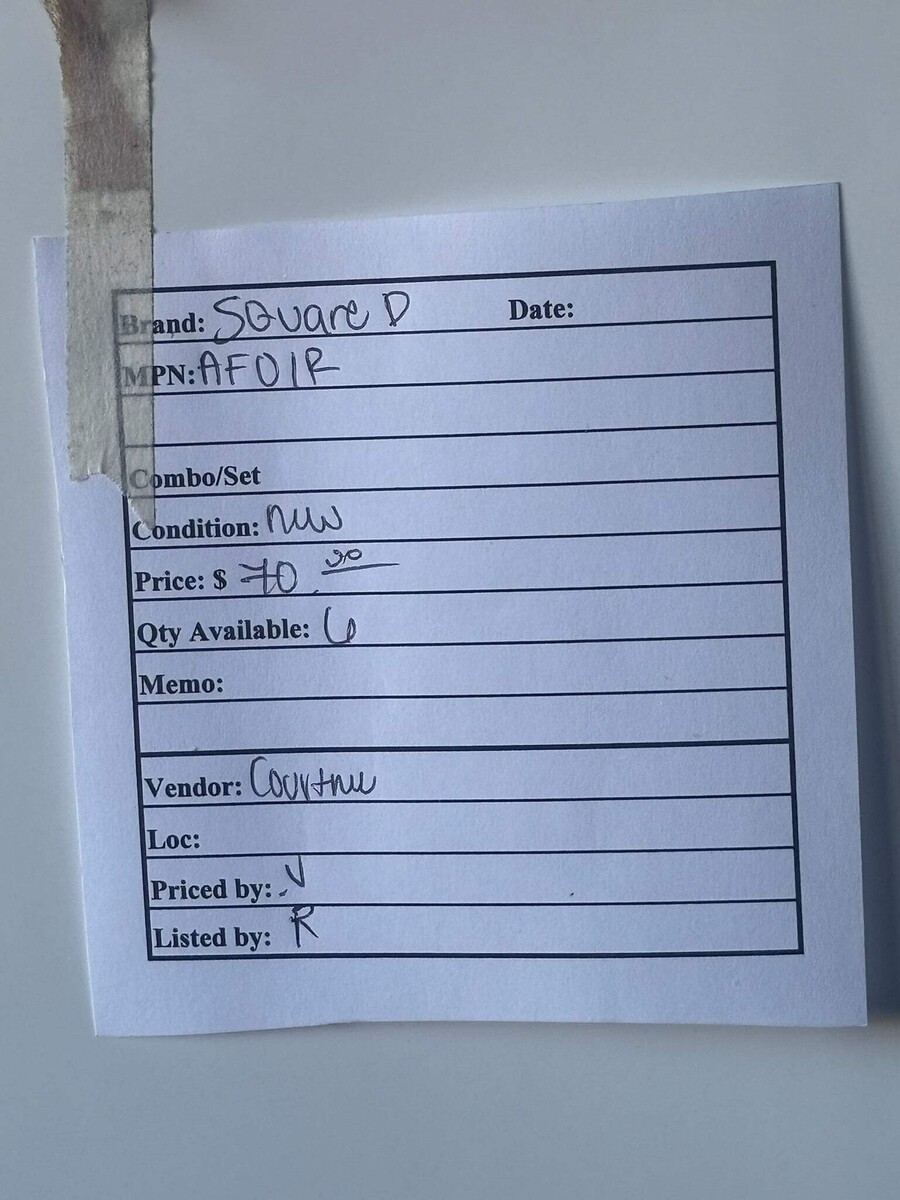 Brand: SQuare D Date:
MPN: AF01R
Combo/Set
Condition: new
Price: $ 70.
Qty Available: 6
Memo:
Vendor:
Loc:
Priced by: J
Listed by: R